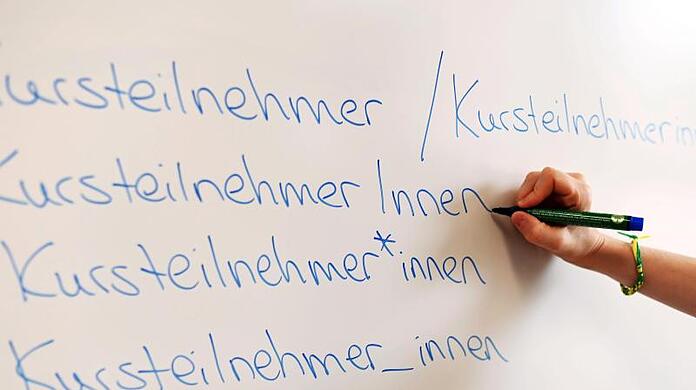 Kursteilnehmer / Kursteilnehmerin
KursteilnehmerInnen
Kursteilnehmer*innen
Kursteilnehmer_innen